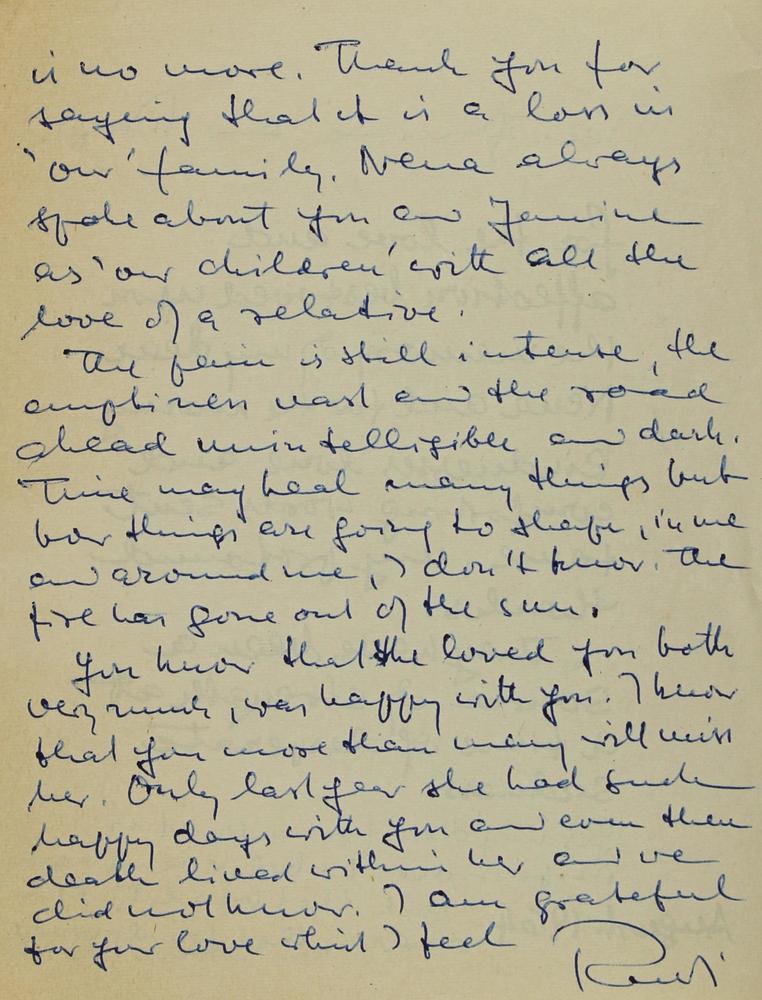 is no more. Thank you for
saying that it is a loss in
'our' family. Nena always
spoke about you and Janine
as 'our children' with all the
love of a relative.
The pain is still intense, the
emptiness vast and the road
ahead unintelligible and dark.
Time may heal many things but
how things are going to shape, in me
and around me, I don't know. The
fire has gone out of the sun.
You know that she loved you both
very much, was happy with you. I know
that you more than many will miss
her. Only last year she had such
happy days with you and even then
death lived within her and we
did not know. I am grateful
for your love which I feel
Rudi